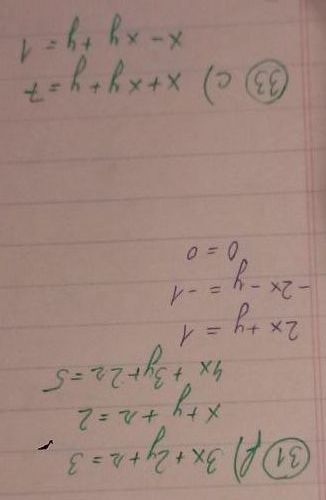 31 f) 3x+2y+z=3
x+y+z=2
4x+3y+2z=5
2x+y=1
-2x-y=-1
0=0
33 c) x+xy+y=7
x-xy+y=1